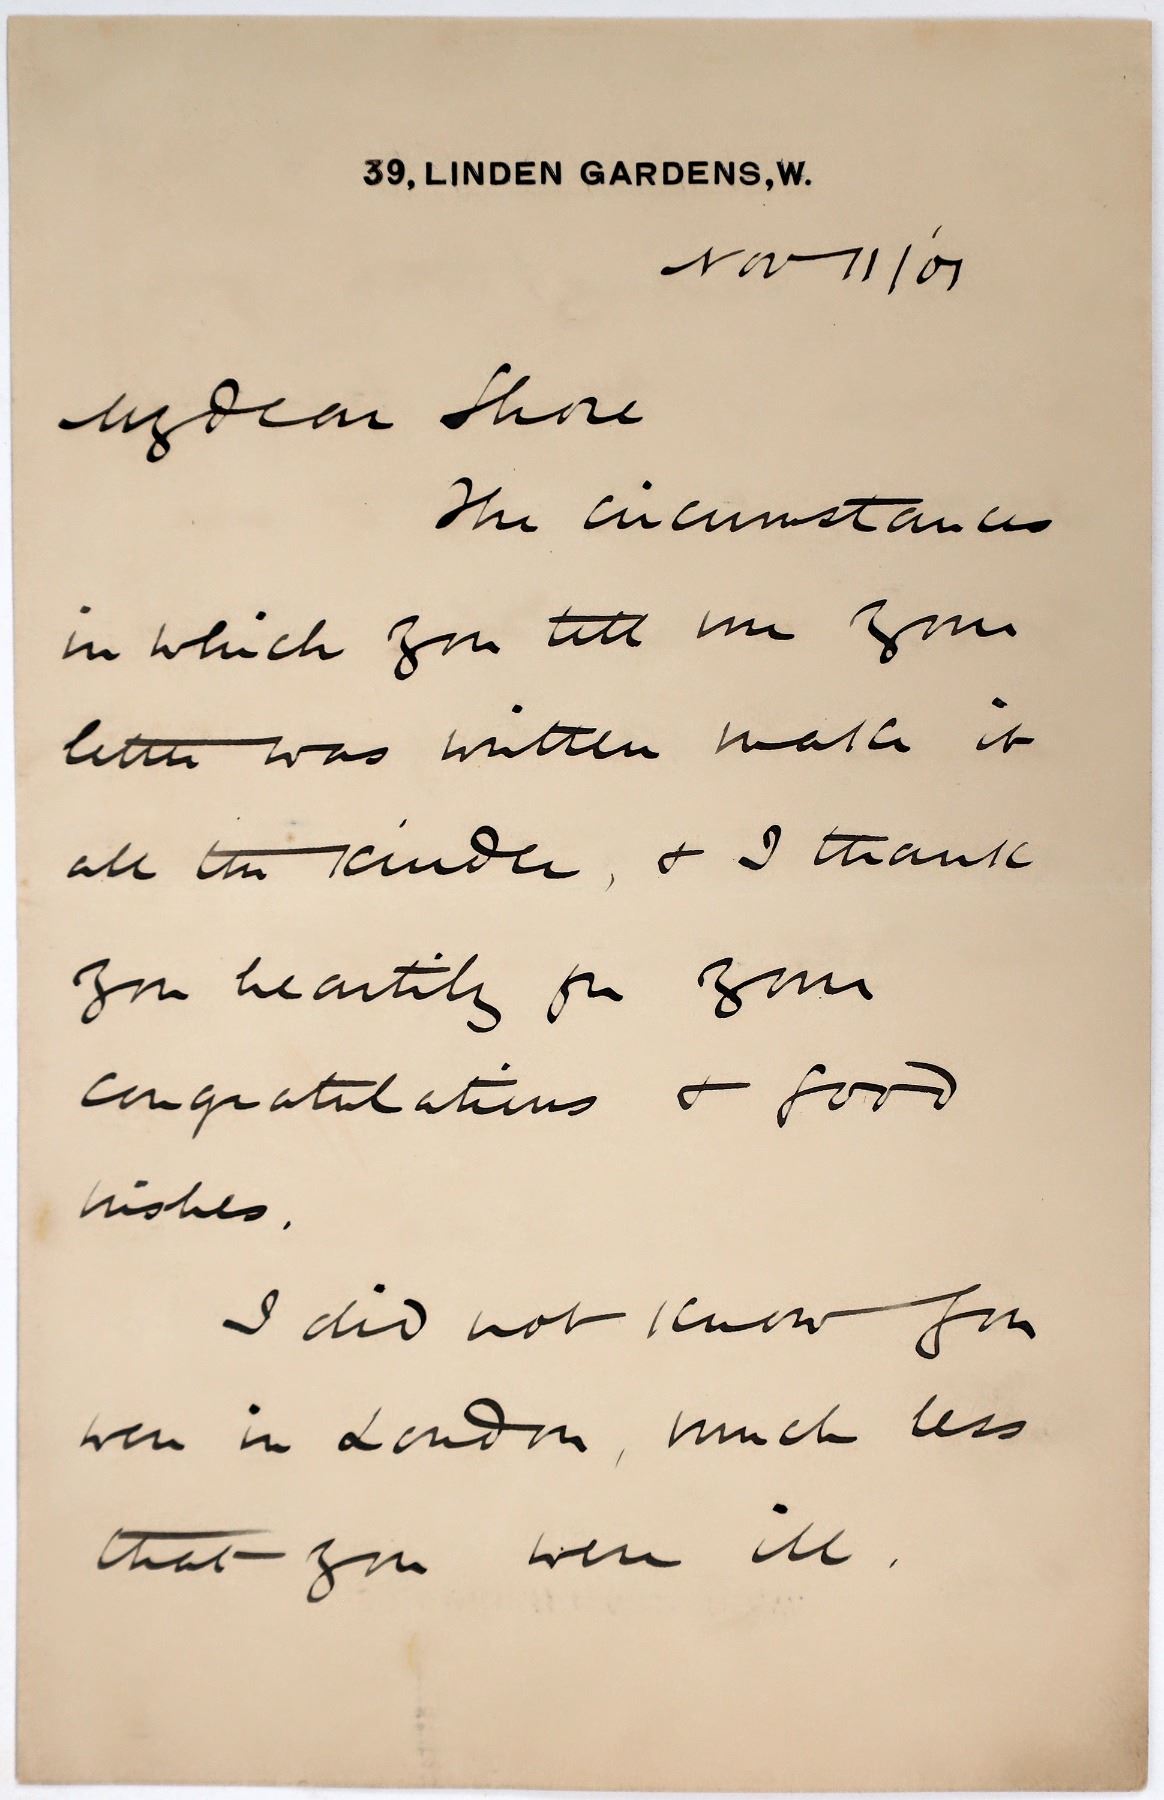 39, LINDEN GARDENS, W.
Nov 11/01
My dear Shore
The circumstances
in which you tell me your
letter was written make it
all the kinder, & I thank
you heartily for your
congratulations & good
wishes.
I did not know you
were in London, much less
that you were ill.